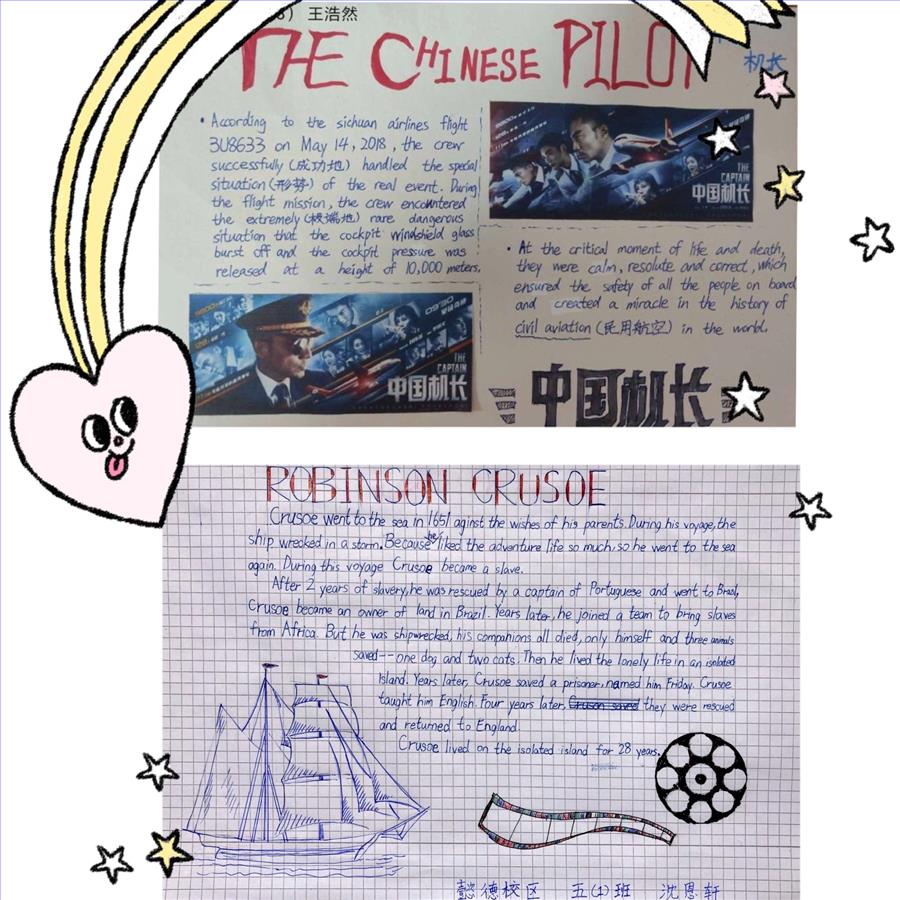 8） 王浩然
THE CHINESE PILOT
机长
• According to the sichuan airlines flight
3U8633 on May 14, 2018, the crew
successfully (成功地) handled the special
situation (形势) of the real event. During
the flight mission, the crew encountered
the extremely (极端地) rare dangerous
situation that the cockpit windshield glass
burst off and the cockpit pressure was
released at a height of 10,000 meters.
THE
CAPTAIN
中国机长
• At the critical moment of life and death,
they were calm, resolute and correct, which
ensured the safety of all the people on board
and created a miracle in the history of
civil aviation (民用航空) in the world.
THE
CAPTAIN
中国机长
中国机长
ROBINSON CRUSOE
Crusoe went to the sea in 1651 aginst the wishes of his parents. During his voyage, the
ship wrecked in a storm. Because he liked the adventure life so much, so he went to the sea
again. During this voyage Crusoe became a slave.
After 2 years of slavery, he was rescued by a captain of Portuguese and went to Brasil,
Crusoe became an owner of land in Brazil. Years later, he joined a team to bring slaves
from Africa. But he was shipwrecked, his companions all died, only himself and three animals
saved--one dog and two cats. Then he lived the lonely life in an isolated
island. Years later, Crusoe saved a prisoner, named him Friday. Crusoe
taught him English. Four years later, they were rescued
and returned to England.
Crusoe lived on the isolated island for 28 years.
懿德校区 五(1)班 沈恩轩